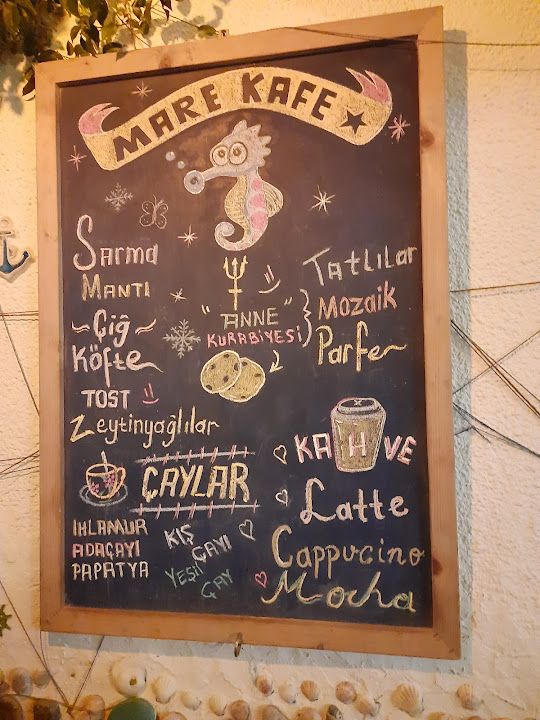 MARE KAFE
Sarma
MANTI
~Çiğ~
Köfte
TOST
Zeytinyağlılar
"ANNE"
KURABİYESİ
Tatlılar
MOZAİK
Parfe
KAHVE
Latte
Cappucino
Mocha
ÇAYLAR
IHLAMUR
ADAÇAYI
PAPATYA
KIŞ
ÇAYI
YEŞİL
ÇAY